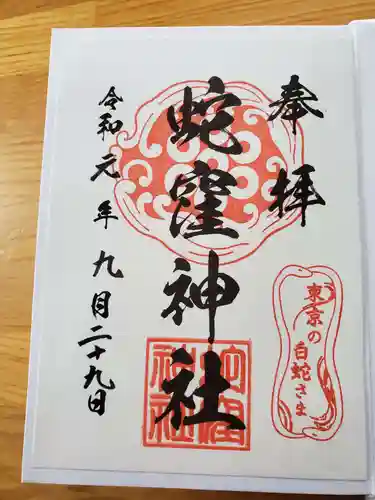 奉拝
東京の
白蛇さま
蛇窪神社
令和元年九月二十九日